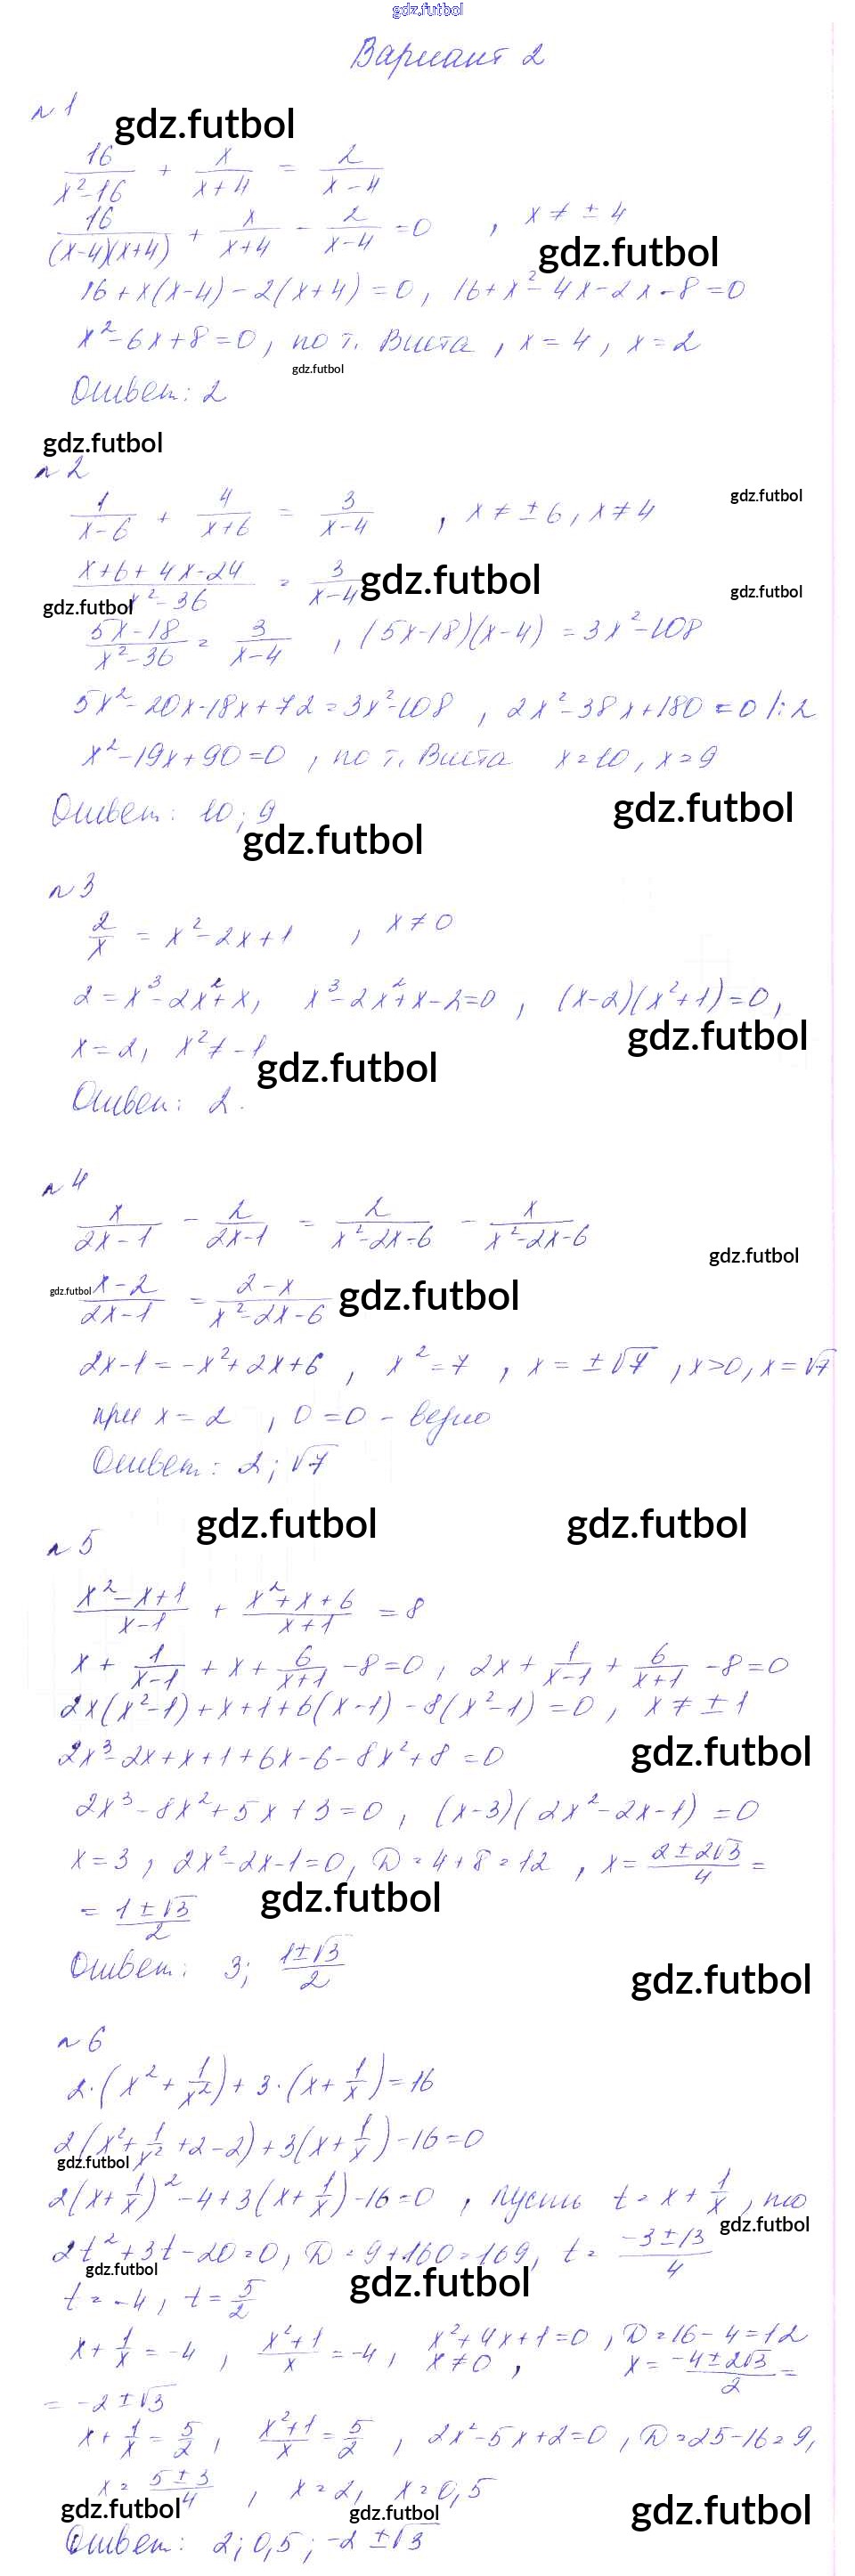 gdz.futbol
Вариант 2
№1
gdz.futbol
16/(x²-16) + x/(x+4) = 2/(x-4)
16/((x-4)(x+4)) + x/(x+4) - 2/(x-4) = 0 , x ≠ ± 4
gdz.futbol
16+x(x-4) - 2(x+4) = 0, 16+x²-4x-2x-8=0
x²-6x+8=0, по т. Виета, x = 4, x = 2
gdz.futbol
Ответ: 2
gdz.futbol
№2
1/(x-6) + 4/(x+6) = 3/(x-4) , x ≠ ± 6, x ≠ 4
gdz.futbol
(x+6+4x-24)/(x²-36) = 3/(x-4)
gdz.futbol
gdz.futbol
gdz.futbol
(5x-18)/(x²-36) = 3/(x-4) , (5x-18)(x-4) = 3x²-108
5x²-20x-18x+72=3x²-108 , 2x²-38x+180=0 /:2
x²-19x+90=0 , по т. Виета x=10, x=9
Ответ: 10; 9
gdz.futbol
gdz.futbol
№3
2/x = x²-2x+1 , x ≠ 0
2 = x³-2x²+x, x³-2x²+x-2=0 , (x-2)(x²+1)=0,
gdz.futbol
x = 2, x² ≠ -1
gdz.futbol
Ответ: 2.
№4
x/(2x-1) - 2/(2x-1) = 2/(x²-2x-6) - x/(x²-2x-6)
gdz.futbol
gdz.futbol
(x-2)/(2x-1) = (2-x)/(x²-2x-6)
gdz.futbol
2x-1 = -x²+2x+6 , x²=7 , x = ±√7 , x>0, x=√7
при x = 2 , 0=0 - верно
Ответ: 2; √7
gdz.futbol
gdz.futbol
№5
(x²-x+1)/(x-1) + (x²+x+6)/(x+1) = 8
x + 1/(x-1) + x + 6/(x+1) - 8=0, 2x + 1/(x-1) + 6/(x+1) - 8=0
2x(x²-1)+x+1+6(x-1) - 8(x²-1) = 0, x ≠ ± 1
gdz.futbol
2x³-2x+x+1+6x-6-8x²+8 = 0
2x³-8x²+5x+3=0, (x-3)(2x²-2x-1) = 0
x=3, 2x²-2x-1=0, D=4+8=12 , x= (2±2√3)/4 =
= (1±√3)/2
gdz.futbol
Ответ: 3; (1±√3)/2
gdz.futbol
№6
2·(x² + 1/x²) + 3·(x + 1/x) = 16
2(x² + 1/x² + 2 - 2) + 3(x + 1/x) - 16=0
gdz.futbol
2(x + 1/x)² - 4 + 3(x + 1/x) - 16=0 , пусть t = x + 1/x, то
gdz.futbol
2t²+3t-20=0, D=9+160=169, t = (-3±13)/4
gdz.futbol
gdz.futbol
t = -4, t = 5/2
x + 1/x = -4 , (x²+1)/x = -4, x²+4x+1=0 , D=16-4=12
x≠0 , x= (-4±2√3)/2 =
= -2±√3
x + 1/x = 5/2 , (x²+1)/x = 5/2 , 2x²-5x+2=0, D=25-16=9,
x = (5±3)/4 , x=2, x=0,5
gdz.futbol
gdz.futbol
gdz.futbol
Ответ: 2; 0,5; -2±√3